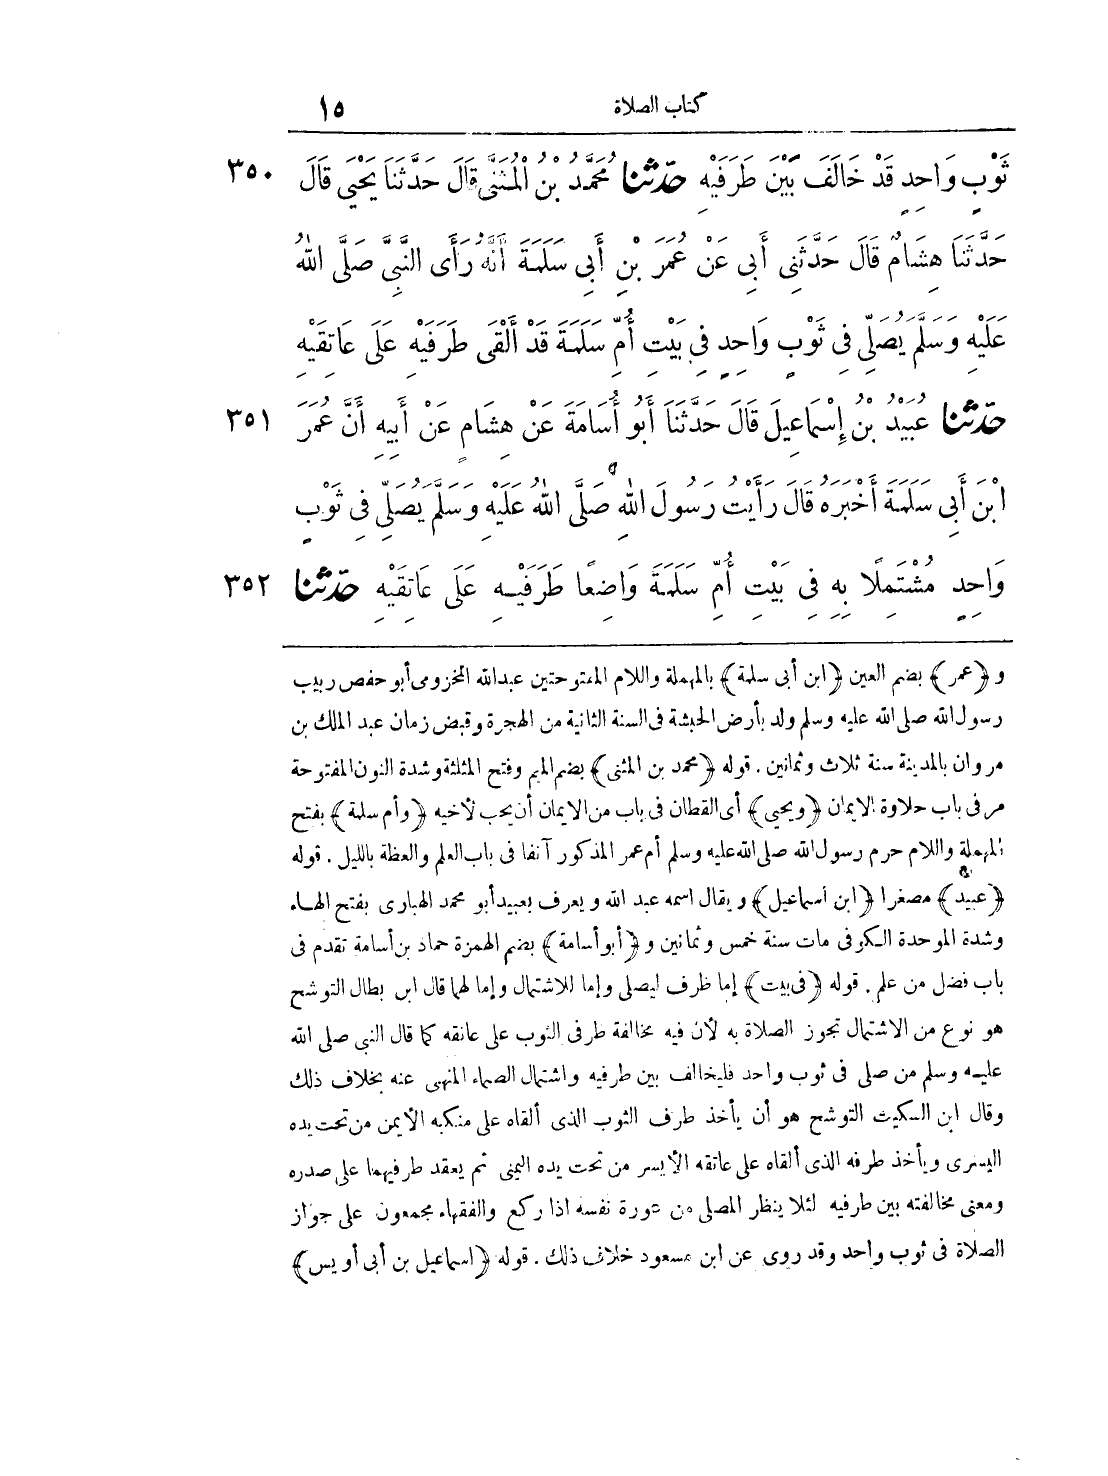 كتاب الصلاة ١٥
ثَوْبٍ وَاحِدٍ قَدْ خَالَفَ بَيْنَ طَرَفَيْهِ حَدَّثَنَا مُحَمَّدُ بْنُ الْمُثَنَّى قَالَ حَدَّثَنَا يَحْيَى قَالَ ٣٥٠
حَدَّثَنَا هِشَامٌ قَالَ حَدَّثَنِى أَبِى عَنْ عُمَرَ بْنِ أَبِى سَلَمَةَ أَنَّهُ رَأَى النَّبِىَّ صَلَّى اللهُ
عَلَيْهِ وَسَلَّمَ يُصَلِّى فِى ثَوْبٍ وَاحِدٍ فِى بَيْتِ أُمِّ سَلَمَةَ قَدْ أَلْقَى طَرَفَيْهِ عَلَى عَاتِقَيْهِ
حَدَّثَنَا عُبَيْدُ بْنُ إِسْمَاعِيلَ قَالَ حَدَّثَنَا أَبُو أُسَامَةَ عَنْ هِشَامٍ عَنْ أَبِيهِ أَنَّ عُمَرَ ٣٥١
ابْنَ أَبِى سَلَمَةَ أَخْبَرَهُ قَالَ رَأَيْتُ رَسُولَ اللهِ صَلَّى اللهُ عَلَيْهِ وَسَلَّمَ يُصَلِّى فِى ثَوْبٍ
وَاحِدٍ مُشْتَمِلًا بِهِ فِى بَيْتِ أُمِّ سَلَمَةَ وَاضِعًا طَرَفَيْهِ عَلَى عَاتِقَيْهِ حَدَّثَنَا ٣٥٢
و ﴿عمر﴾ بضم العين ﴿ابن أبى سلمة﴾ بالمهملة واللام المفتوحتين عبدالله المخزومى أبو حفص ربيب
رسول الله صلى الله عليه وسلم ولد بأرض الحبشة فى السنة الثانية من الهجرة وقبض زمان عبد الملك بن
مروان بالمدينة سنة ثلاث وثمانين . قوله ﴿محمد بن المثنى﴾ بضم الميم وفتح المثلثة وشدة النون المفتوحة
مر فى باب حلاوة الايمان ﴿ويحيى﴾ أى القطان فى باب من الايمان أن يحب لأخيه ﴿وأم سلمة﴾ بفتح
المهملة واللام حرم رسول الله صلى الله عليه وسلم أم عمر المذكور آنفا فى باب العلم والعظة بالليل . قوله
﴿عبيد﴾ مصغرا ﴿ابن اسماعيل﴾ ويقال اسمه عبد الله ويعرف بعبيد أبو محمد الهبارى بفتح الهاء
وشدة الموحدة الكوفى مات سنة خمس وثمانين و ﴿أبو أسامة﴾ بضم الهمزة حماد بن أسامة تقدم فى
باب فضل من علم . قوله ﴿فى بيت﴾ إما ظرف ليصلى وإما للاشتمال وإما لهما قال ابن بطال التوشح
هو نوع من الاشتمال تجوز الصلاة به لأن فيه مخالفة طرفى الثوب على عاتقه كما قال النبى صلى الله
عليه وسلم من صلى فى ثوب واحد فليخالف بين طرفيه واشتمال الصماء المنهى عنه بخلاف ذلك
وقال ابن السكيت التوشح هو أن يأخذ طرف الثوب الذى ألقاه على منكبه الأيمن من تحت يده
اليسرى ويأخذ طرفه الذى ألقاه على عاتقه الأيسر من تحت يده اليمنى ثم يعقد طرفيهما على صدره
ومعنى مخالفته بين طرفيه لئلا ينظر المصلى من عورة نفسه اذا ركع والفقهاء مجمعون على جواز
الصلاة فى ثوب واحد وقد روى عن ابن مسعود خلاف ذلك . قوله ﴿اسماعيل بن أبى أويس﴾